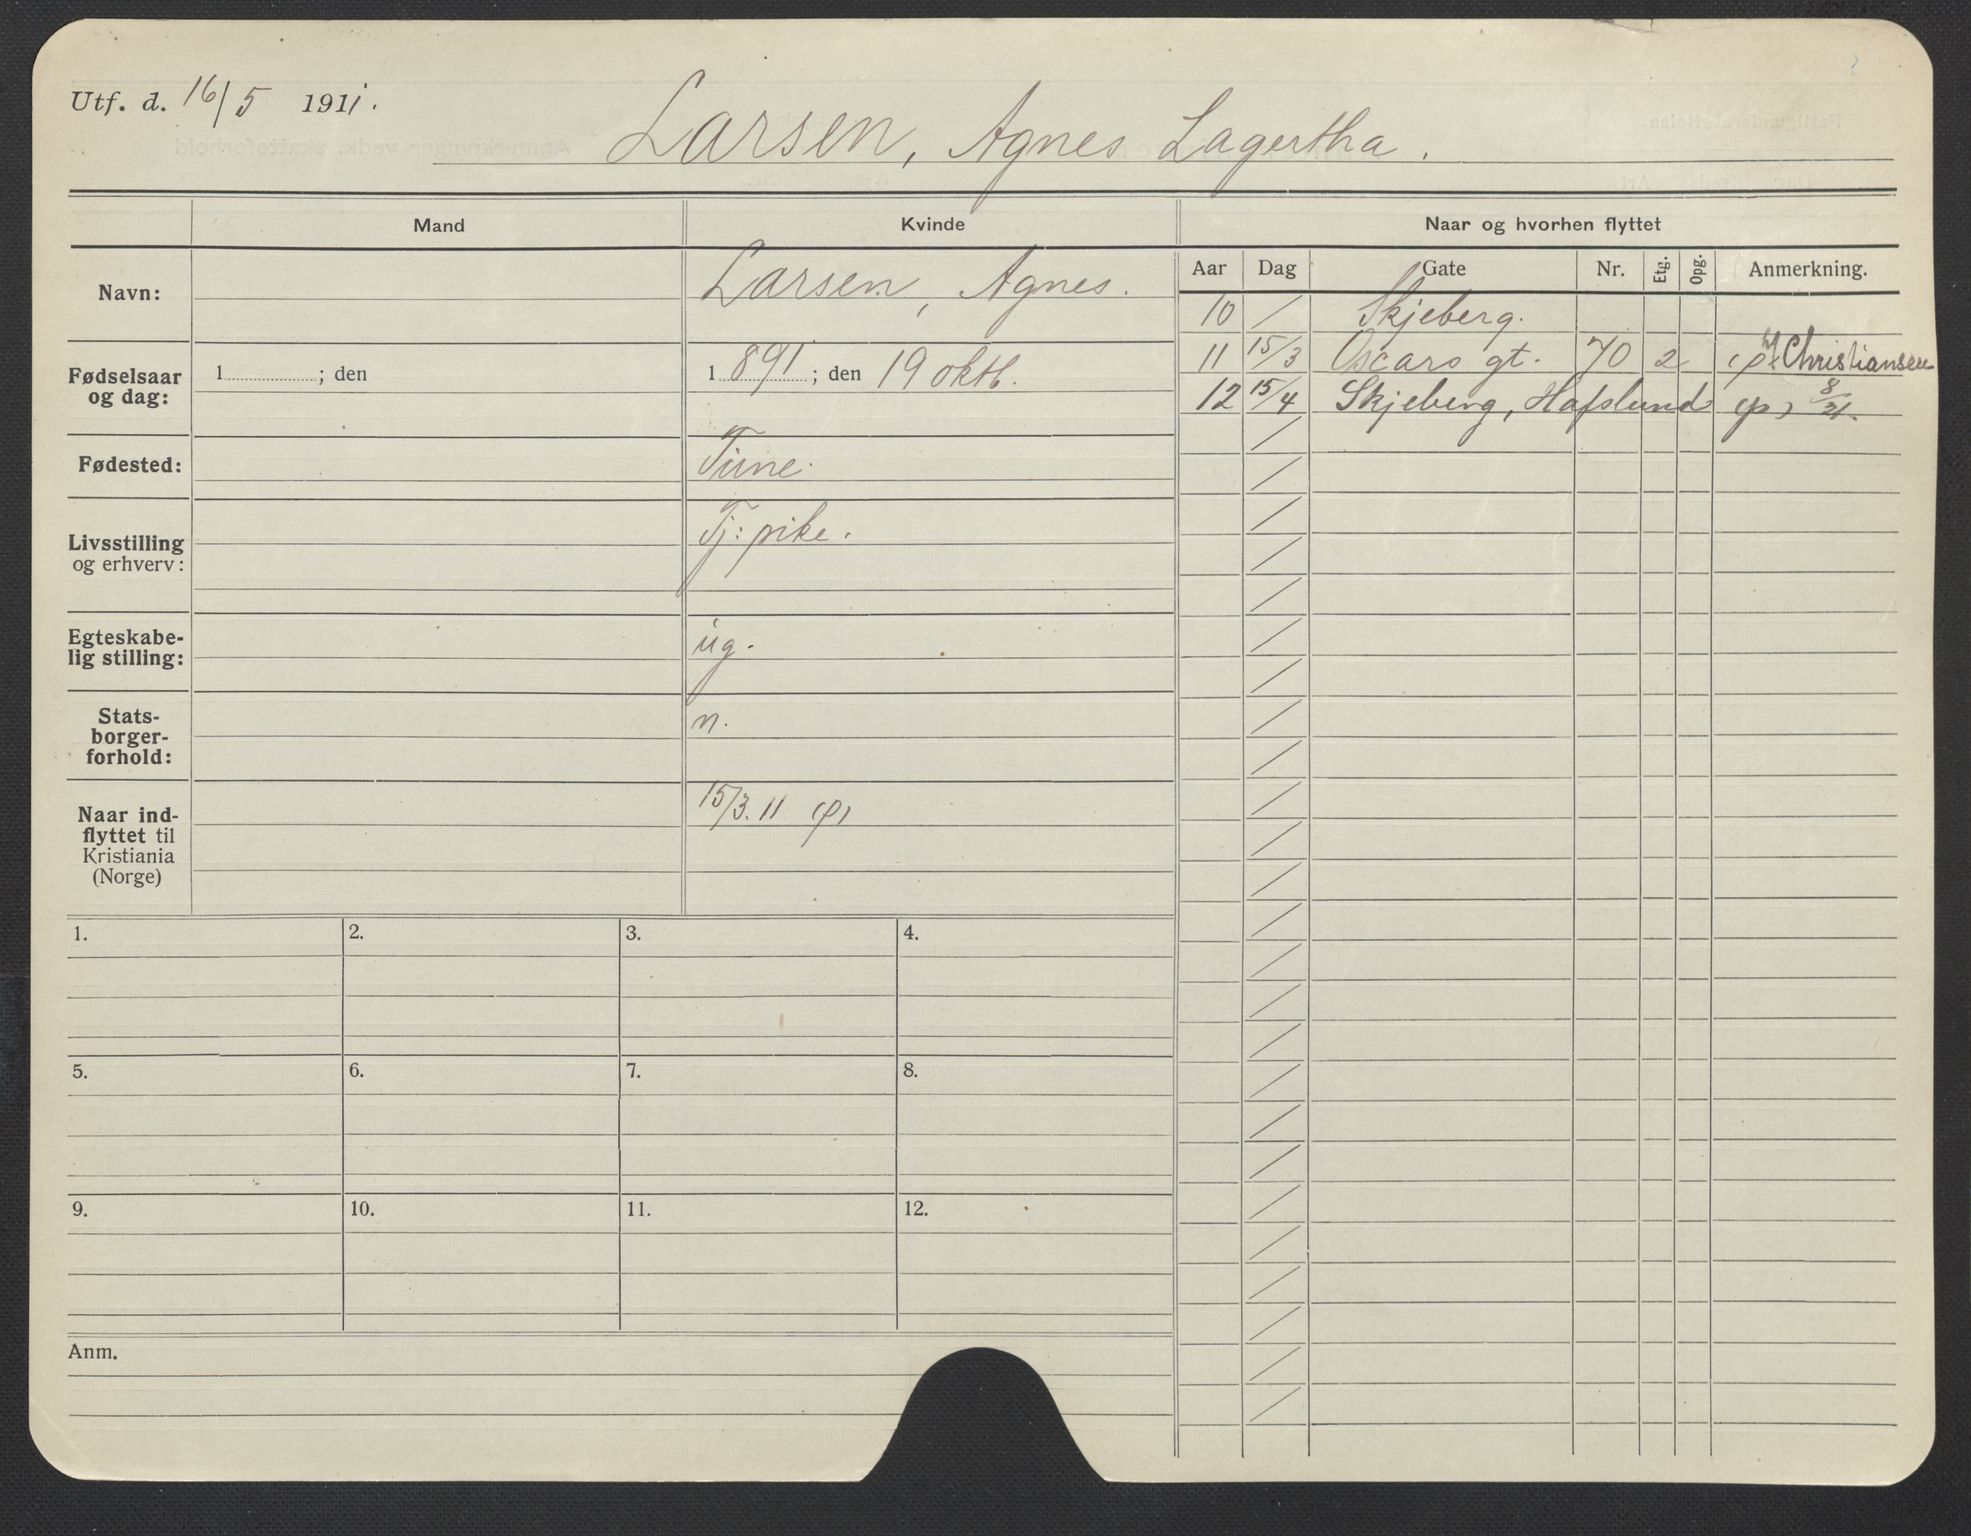 Utf. d. 16/5 1911.
Larsen, Agnes Lagertha.
Mand Kvinde Naar og hvorhen flyttet
Aar Dag Gate Nr. Etg. Opg. Anmerkning.
Navn: Larsen, Agnes.
10 / Skjeberg.
11 15/3 Oscars gt. 70 2 (p) Christiansen
12 15/4 Skjeberg, Hafslund (p) 8/21.
Fødselsaar
og dag:
1 ; den
1891; den 19 oktb.
Fødested: Tune.
Livsstilling
og erhverv:
Tj: pike.
Egteskabe-
lig stilling:
ug.
Stats-
borger-
forhold:
n.
Naar ind-
flyttet til
Kristiania
(Norge)
15/3. 11 (p)
1. 2. 3. 4.
5. 6. 7. 8.
9. 10. 11. 12.
Anm.